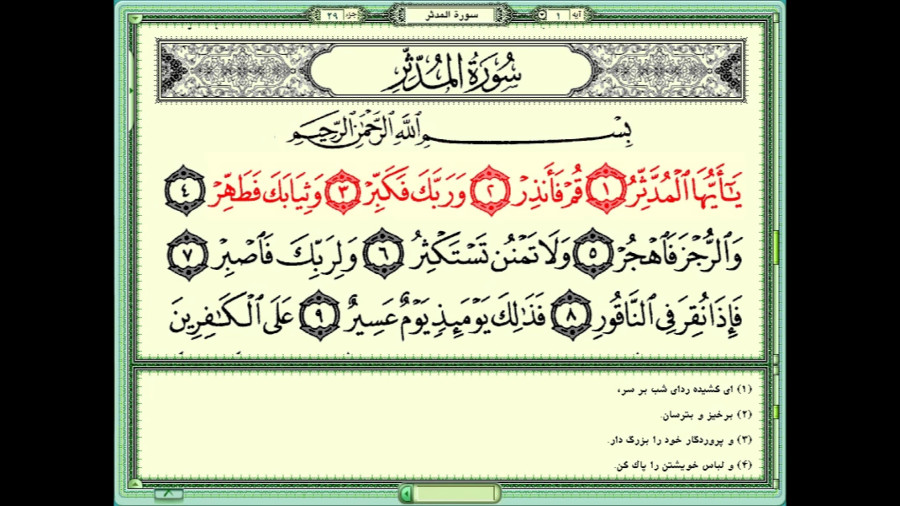 آیه ١ سورة المدثر جزء ٢٩
سُورَةُ المُدَّثِّر
بِسْمِ اللَّهِ الرَّحْمَٰنِ الرَّحِيمِ
يَـٰٓأَيُّهَا ٱلۡمُدَّثِّرُ ١ قُمۡ فَأَنذِرۡ ٢ وَرَبَّكَ فَكَبِّرۡ ٣ وَثِيَابَكَ فَطَهِّرۡ ٤
وَٱلرُّجۡزَ فَٱهۡجُرۡ ٥ وَلَا تَمۡنُن تَسۡتَكۡثِرُ ٦ وَلِرَبِّكَ فَٱصۡبِرۡ ٧
فَإِذَا نُقِرَ فِي ٱلنَّاقُورِ ٨ فَذَٰلِكَ يَوۡمَئِذٖ يَوۡمٌ عَسِيرٌ ٩ عَلَى ٱلۡكَـٰفِرِينَ
(١) ای کشیده ردای شب بر سر،
(٢) برخیز و بترسان.
(٣) و پروردگار خود را بزرگ دار.
(۴) و لباس خویشتن را پاک کن.